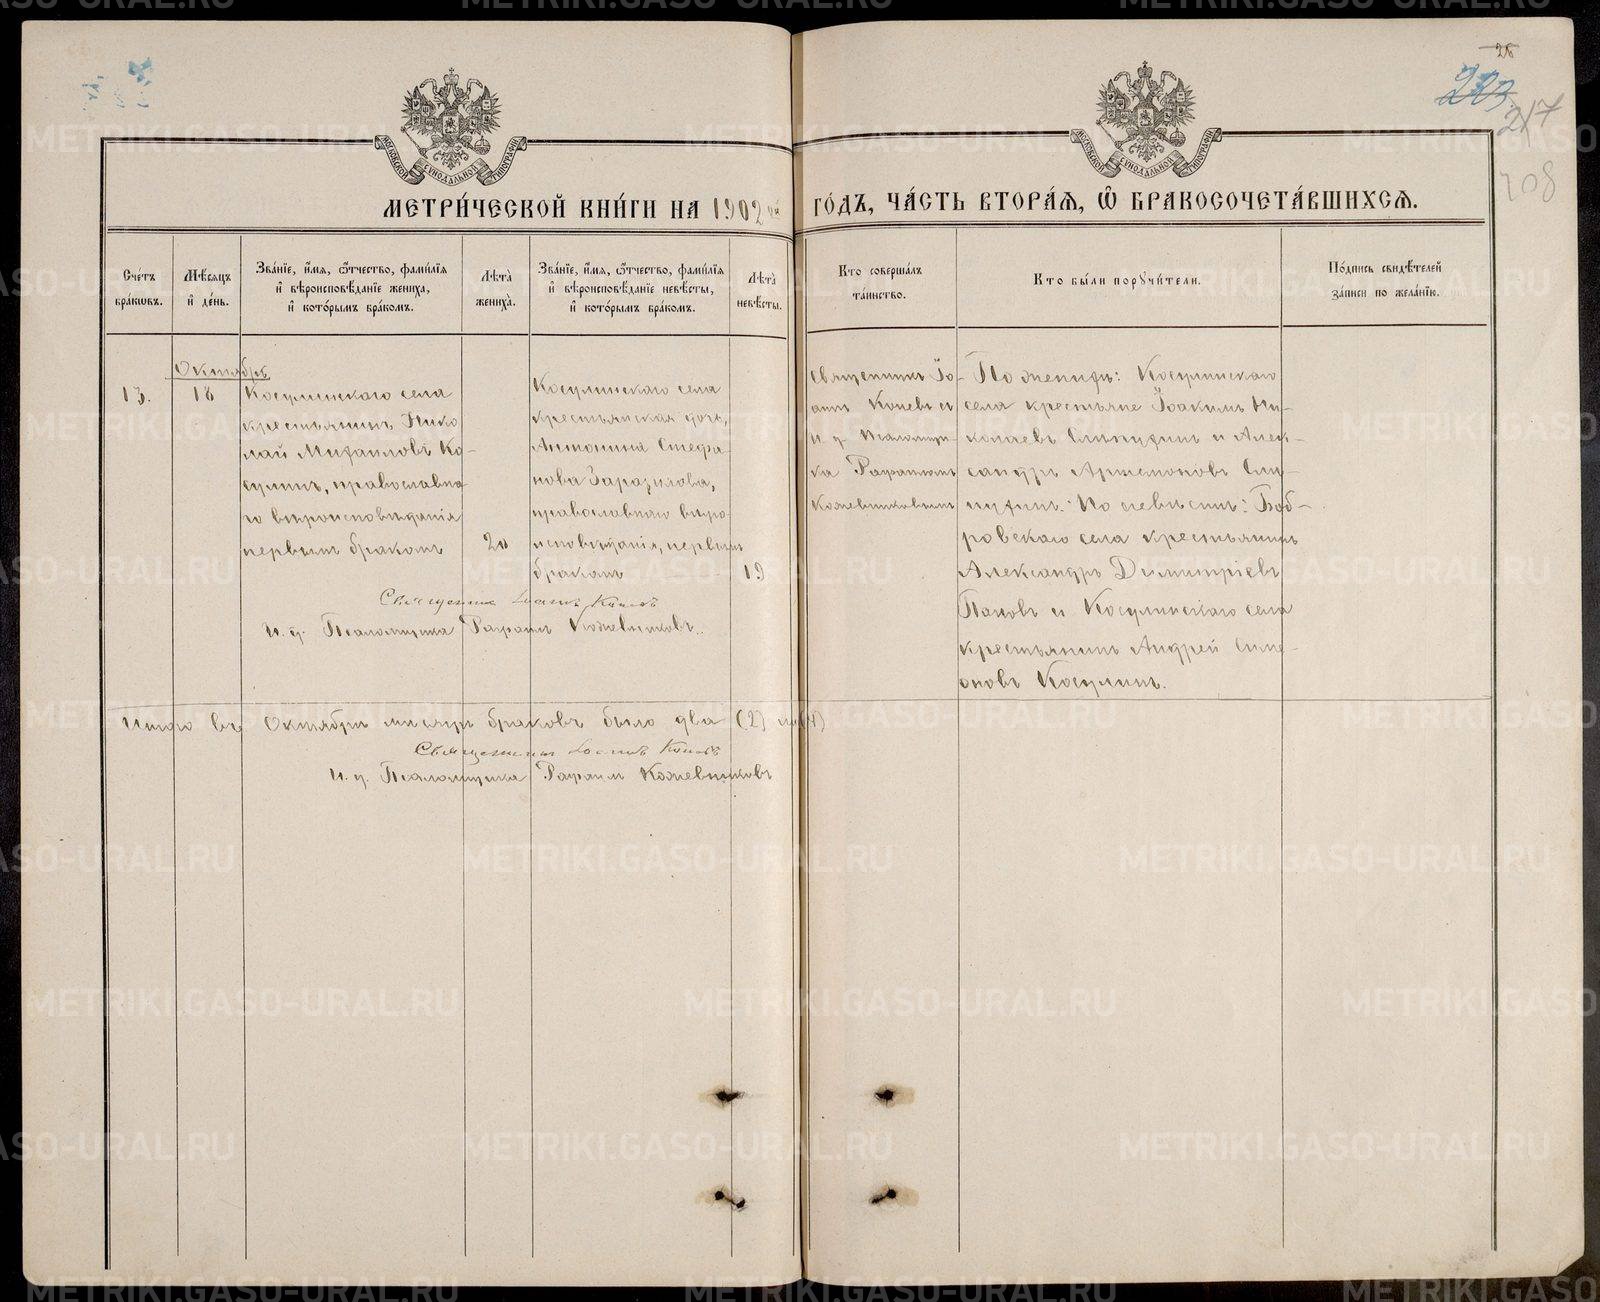 28
203
217
208
МОСКОВСКОЙ СУНОДАЛЬНОЙ ТИПОГРАФІИ
МОСКОВСКОЙ СУНОДАЛЬНОЙ ТИПОГРАФІИ
МЕТРИ́ЧЕСКОЙ КНИ́ГИ НА 1902 ГО́ДЪ, ЧА́СТЬ ВТОРА́Ѧ, Ѿ БРАКОСОЧЕТА́ВШИХСѦ.
Сче́тъ бра́ковъ.
Мѣ́сѧцъ и҆ де́нь.
Зва́нїе, и҆́мѧ, ѻ҆́тчество, фами́лїѧ и҆ вѣроисповѣ́данїе жениха̀, и҆ кото́рымъ бра́комъ.
Лѣ́та жениха̀.
Зва́нїе, и҆́мѧ, ѻ҆́тчество, фами́лїѧ и҆ вѣроисповѣ́данїе невѣ́сты, и҆ кото́рымъ бра́комъ.
Лѣ́та невѣ́сты.
Кто̀ соверша́лъ та́инство.
Кто̀ бы́ли порꙋчи́тели.
По́дпись свидѣ́телей за́писи по жела́нїю.
13.
Октябрь
18
Косулинскаго села
крестьянинъ Нико
лай Михаиловъ Ко-
сулинъ, православна
го вѣроисповѣданія
первымъ бракомъ
20
Косулинскаго села
крестьянская дочь,
Антонина Стефа-
нова
православнаго вѣро-
исповѣданія, первымъ
бракомъ
19
Священникъ Іо-
аннъ Коневъ и
и. д. Псаломщи-
ка Рафаиломъ
Кожевниковымъ
По женихѣ: Косулинскаго
села крестьяне Іоакимъ Ни-
колаевъ и Алек-
сандръ Артемоновъ
По невѣстѣ: Боб-
ровскаго села крестьянинъ
Александръ Димитріевъ
Пановъ и Косулинскаго села
крестьянинъ Андрей Симе-
оновъ Косулинъ.
Священникъ Іоаннъ Коневъ
И. д. Псаломщика Рафаилъ Кожевниковъ.
Итого въ Октябрѣ мѣсяцѣ браковъ было два (2)
Священникъ Іоаннъ Коневъ
И. д. Псаломщика Рафаилъ Кожевниковъ
METRIKI.GASO-URAL.RU